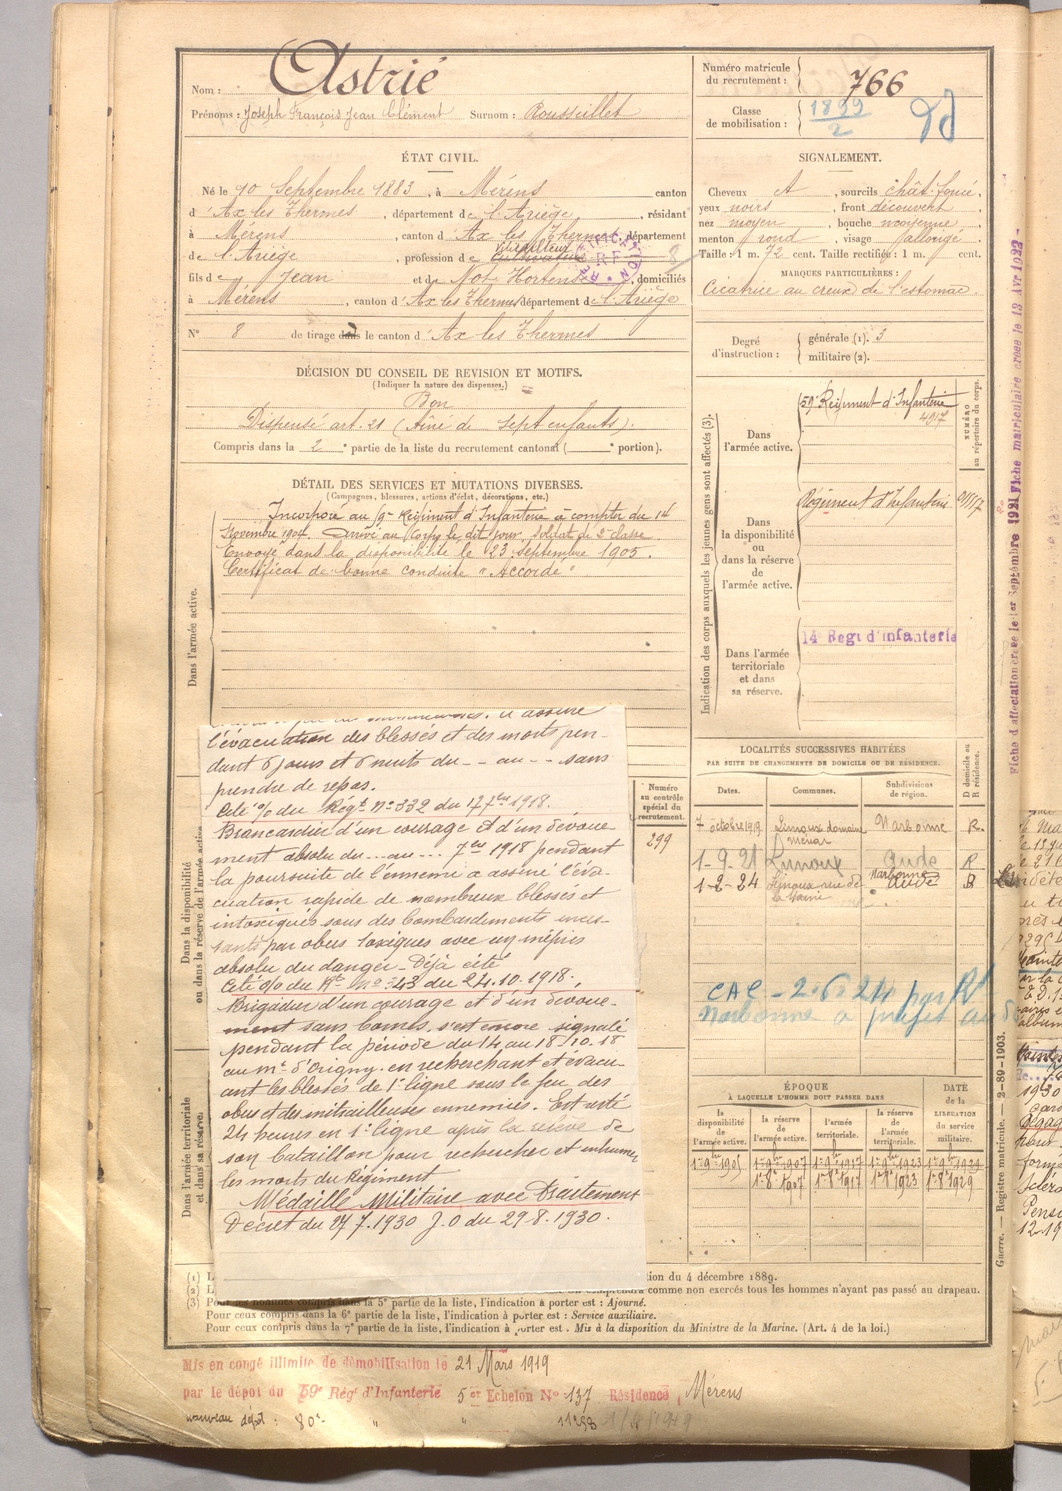 Nom : Astrié
Prénoms : Joseph François Jean Clément Surnom : Rousseillet
Numéro matricule du recrutement : 766
Classe de mobilisation : 1899/2
ÉTAT CIVIL.
Né le 10 Septembre 1883, à Mérens canton
d'Ax les Thermes, département de l'Ariège, résidant
à Mérens, canton d'Ax les Thermes, département
de l'Ariège, profession de Cultivateur
fils de Jean et de Not Hortense, domiciliés
à Mérens, canton d'Ax les Thermes, département de l'Ariège
N° 8 de tirage dans le canton d'Ax les Thermes
SIGNALEMENT.
Cheveux et, sourcils chât. foncé.
yeux noirs, front découvert
nez moyen, bouche moyenne,
menton rond, visage allongé.
Taille : 1 m. 72 cent. Taille rectifiée : 1 m. cent.
MARQUES PARTICULIÈRES :
Cicatrice au creux de l'estomac.
Degré d'instruction : générale (1). 3
militaire (2).
DÉCISION DU CONSEIL DE REVISION ET MOTIFS.
(Indiquer la nature des dispenses.)
Bon
Dispensé art. 21 (Aîné de sept enfants).
Compris dans la 2e partie de la liste du recrutement cantonal ( e portion).
DÉTAIL DES SERVICES ET MUTATIONS DIVERSES.
(Campagnes, blessures, actions d'éclat, décorations, etc.)
Dans l'armée active.
Incorporé au Régiment d'Infanterie à compter du 14
Novembre 1904. Arrivé au Corps le dit jour, soldat de 2e classe.
Envoyé dans la disponibilité le 23 Septembre 1905.
Certificat de bonne conduite "Accordé"
Indication des corps auxquels les jeunes gens sont affectés (3).
NUMÉRO au répertoire du corps.
Dans l'armée active.
59e Régiment d'Infanterie
4017
Dans la disponibilité ou dans la réserve de l'armée active.
Régiment d'Infanterie
Dans l'armée territoriale et dans sa réserve.
14 Regt d'infanterie
Dans la disponibilité ou dans la réserve de l'armée active.
Dans l'armée territoriale et dans sa réserve.
il assure
l'évacuation des blessés et des morts pen-
dant 6 jours et 6 nuits du -- au -- sans
prendre de repos.
Cité % du Régt N° 332 du 17 7bre 1918.
Brancardier d'un courage et d'un dévoue-
ment absolu du ... au ... 7bre 1918 pendant
la poursuite de l'ennemi a assuré l'éva-
cuation rapide de nombreux blessés et
intoxiqués sous des bombardements inces-
sants par obus toxiques avec un mépris
absolu du danger - Déjà cité
Cité % du Rt n° 343 du 24.10.1918.
Brigadier d'un courage et d'un dévoue-
ment sans bornes. s'est encore signalé
pendant la période du 14 au 18/10.18
au Mt d'Origny. en recherchant et évacu-
ant les blessés de 1e ligne sous le feu des
obus et des mitrailleuses ennemies. Est resté
24 heures en 1e ligne après la relève de
son bataillon pour rechercher et inhumer
les morts du Régiment
Médaille Militaire avec Traitement
Décret du 27.7.1930 J.O du 29.8.1930.
Numéro au contrôle spécial du recrutement.
299
LOCALITÉS SUCCESSIVES HABITÉES
PAR SUITE DE CHANGEMENTS DE DOMICILE OU DE RÉSIDENCE.
Dates. Communes. Subdivisions de région. D domicile ou R résidence.
7 octobre 1919 Limoux domaine Narbonne R.
1-9-21 Limoux Aude R
1-2-24 Limoux rue de Narbonne Aude
CAC - 2.6.24 par Rt
Narbonne à préfet
ÉPOQUE
À LAQUELLE L'HOMME DOIT PASSER DANS
la disponibilité de l'armée active. la réserve de l'armée active. l'armée territoriale. la réserve de l'armée territoriale. DATE de la LIBÉRATION du service militaire.
1er 9bre 1905 1er 9bre 1907 1er 9bre 1917 1er 9bre 1923 1er 9bre 1929
1er 8bre 1907 1er 8bre 1917 1er 8bre 1923 1er 8bre 1929
(1) L
(2) L
tion du 4 décembre 1889.
comprendra comme non exercés tous les hommes n'ayant pas passé au drapeau.
(3) Pour les hommes compris dans la 5e partie de la liste, l'indication à porter est : Ajourné.
Pour ceux compris dans la 6e partie de la liste, l'indication à porter est : Service auxiliaire.
Pour ceux compris dans la 7e partie de la liste, l'indication à porter est : Mis à la disposition du Ministre de la Marine. (Art. 4 de la loi.)
Mis en congé illimité de démobilisation le 21 Mars 1919
par le dépôt du 59e Régt d'Infanterie 5e Echelon N° 137 Résidence, Mérens
nouveau dépôt : 80e " "
Guerre. — Registre matricule. — 2-89-1903.
Fiche d'affectation créée le 1er Septembre 1921 Fiche matriculaire créée le 13 Avr 1922